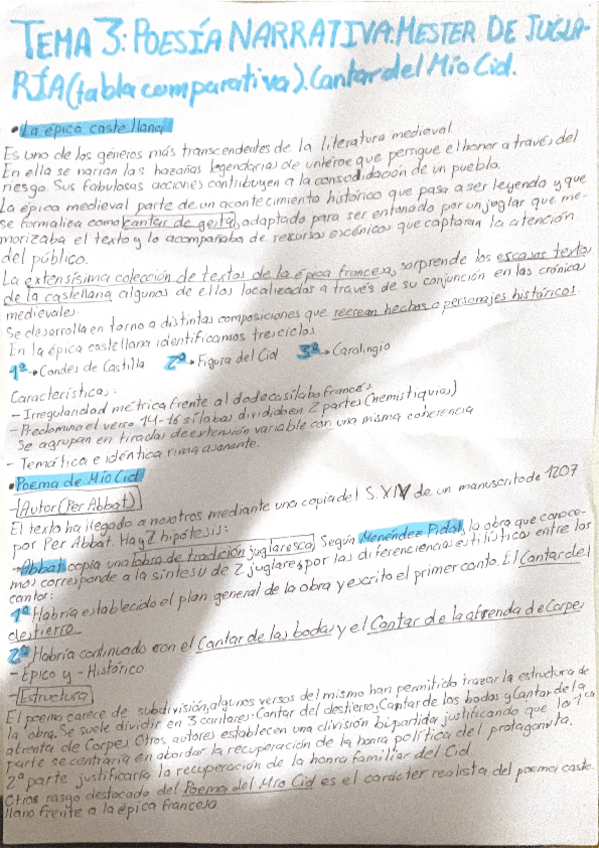 TEMA 3: POESÍA NARRATIVA: MESTER DE JUGLA-
RÍA (tabla comparativa). Cantar del Mío Cid.
• La épica castellana
Es uno de los géneros más transcendentes de la literatura medieval.
En ella se narran las hazañas legendarias de un héroe que persigue el honor a través del
riesgo. Sus fabulosas acciones contribuyen a la consolidación de un pueblo.
La épica medieval parte de un acontecimiento histórico que pasa a ser leyenda y que
se formaliza como cantar de gesta, adaptado para ser entonado por un juglar que me-
morizaba el texto y lo acompañaba de recursos escénicos que captaran la atención
del público.
La extensísima colección de textos de la épica francesa, sorprende los escasos textos
de la castellana algunos de ellos localizados a través de su conjunción en las crónicas
medievales.
Se desarrolla en torno a distintas composiciones que recrean hechos o personajes históricos.
En la épica castellana identificamos tres ciclos.
1ª → Condes de Castilla 2ª → Figura del Cid 3ª → Carolingio
Características:
- Irregularidad métrica frente al dodecasílabo francés
- Predomina el verso 14-16 sílabas dividido en 2 partes (hemistiquios)
Se agrupan en tiradas de extensión variable con una misma coherencia
- Temática e idéntica rima asonante.
• Poema de Mío Cid
- Autor (Per Abbat)
El texto ha llegado a nosotros mediante una copia del S. XIV de un manuscrito de 1207
por Per Abbat. Hay 2 hipótesis:
→ Abbat copia una obra de tradición juglaresca. Según Menéndez Pidal, la obra que conoce-
mos corresponde a la síntesis de 2 juglares, por las diferencias estilísticas entre los
cantar:
1ª Habría establecido el plan general de la obra y escrito el primer canto. El Cantar del
destierro
2ª Habría continuado con el Cantar de las bodas y el Cantar de la afrenda de Corpes
- Épico y - Histórico
- Estructura
El poema carece de subdivisión, algunos versos del mismo han permitido trazar la estructura de
la obra. Se suele dividir en 3 cantares: Cantar del destierro, Cantar de las bodas y Cantar de la
afrenta de Corpes. Otros autores establecen una división bipartida, justificando que la 1ª
parte se centraría en abordar la recuperación de la honra política del protagonista.
2ª parte justificaría la recuperación de la honra familiar del Cid.
Otros rasgo destacado del Poema del Mío Cid es el carácter realista del poema caste-
llano frente a la épica francesa.